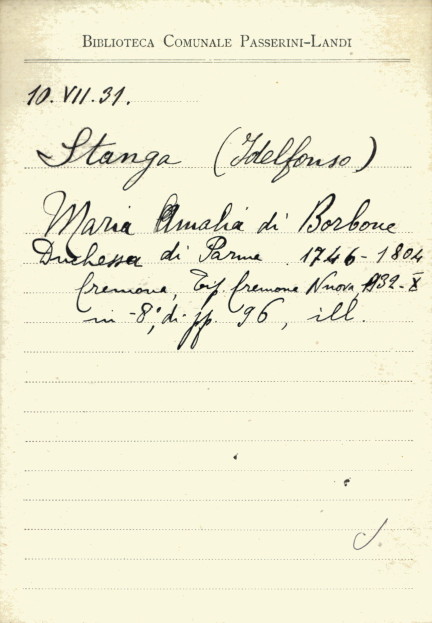 BIBLIOTECA COMUNALE PASSERINI-LANDI
10.VII.31.
Stanga (Idelfonso)
Maria Amalia di Borbone
Duchessa di Parma . 1746-1804
Cremona, Tip. Cremona Nuova, 1932-X
in -8°, di pp. 96, ill.